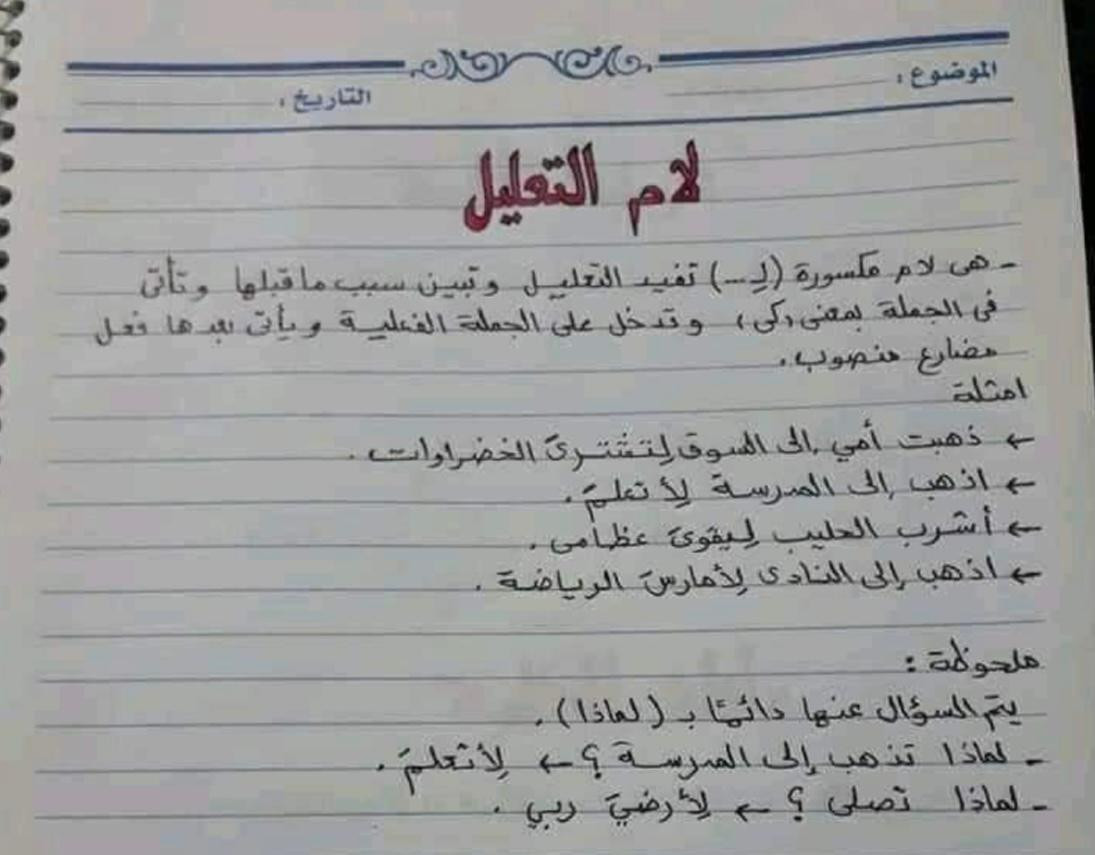 الموضوع :
التاريخ :
لام التعليل
- هى لام مكسورة (لِـ...) تفيد التعليل وتبين سبب ماقبلها وتأتى
فى الجملة بمعنى (كى) وتدخل على الجملة الفعلية ويأتى بعدها فعل
مضارع منصوب.
امثلة
← ذهبت أمي إلى السوق لِتشترىَ الخضراوات.
← اذهب إلى المدرسة لِأتعلمَ.
← أشرب الحليب لِيقوىَ عظامى.
← اذهب إلى النادى لِأمارسَ الرياضة.
ملحوظة :
يتم السؤال عنها دائمًا بـ (لماذا).
- لماذا تذهب إلى المدرسة ؟ ← لِأتعلمَ.
- لماذا تصلى ؟ ← لِأرضيَ ربي.